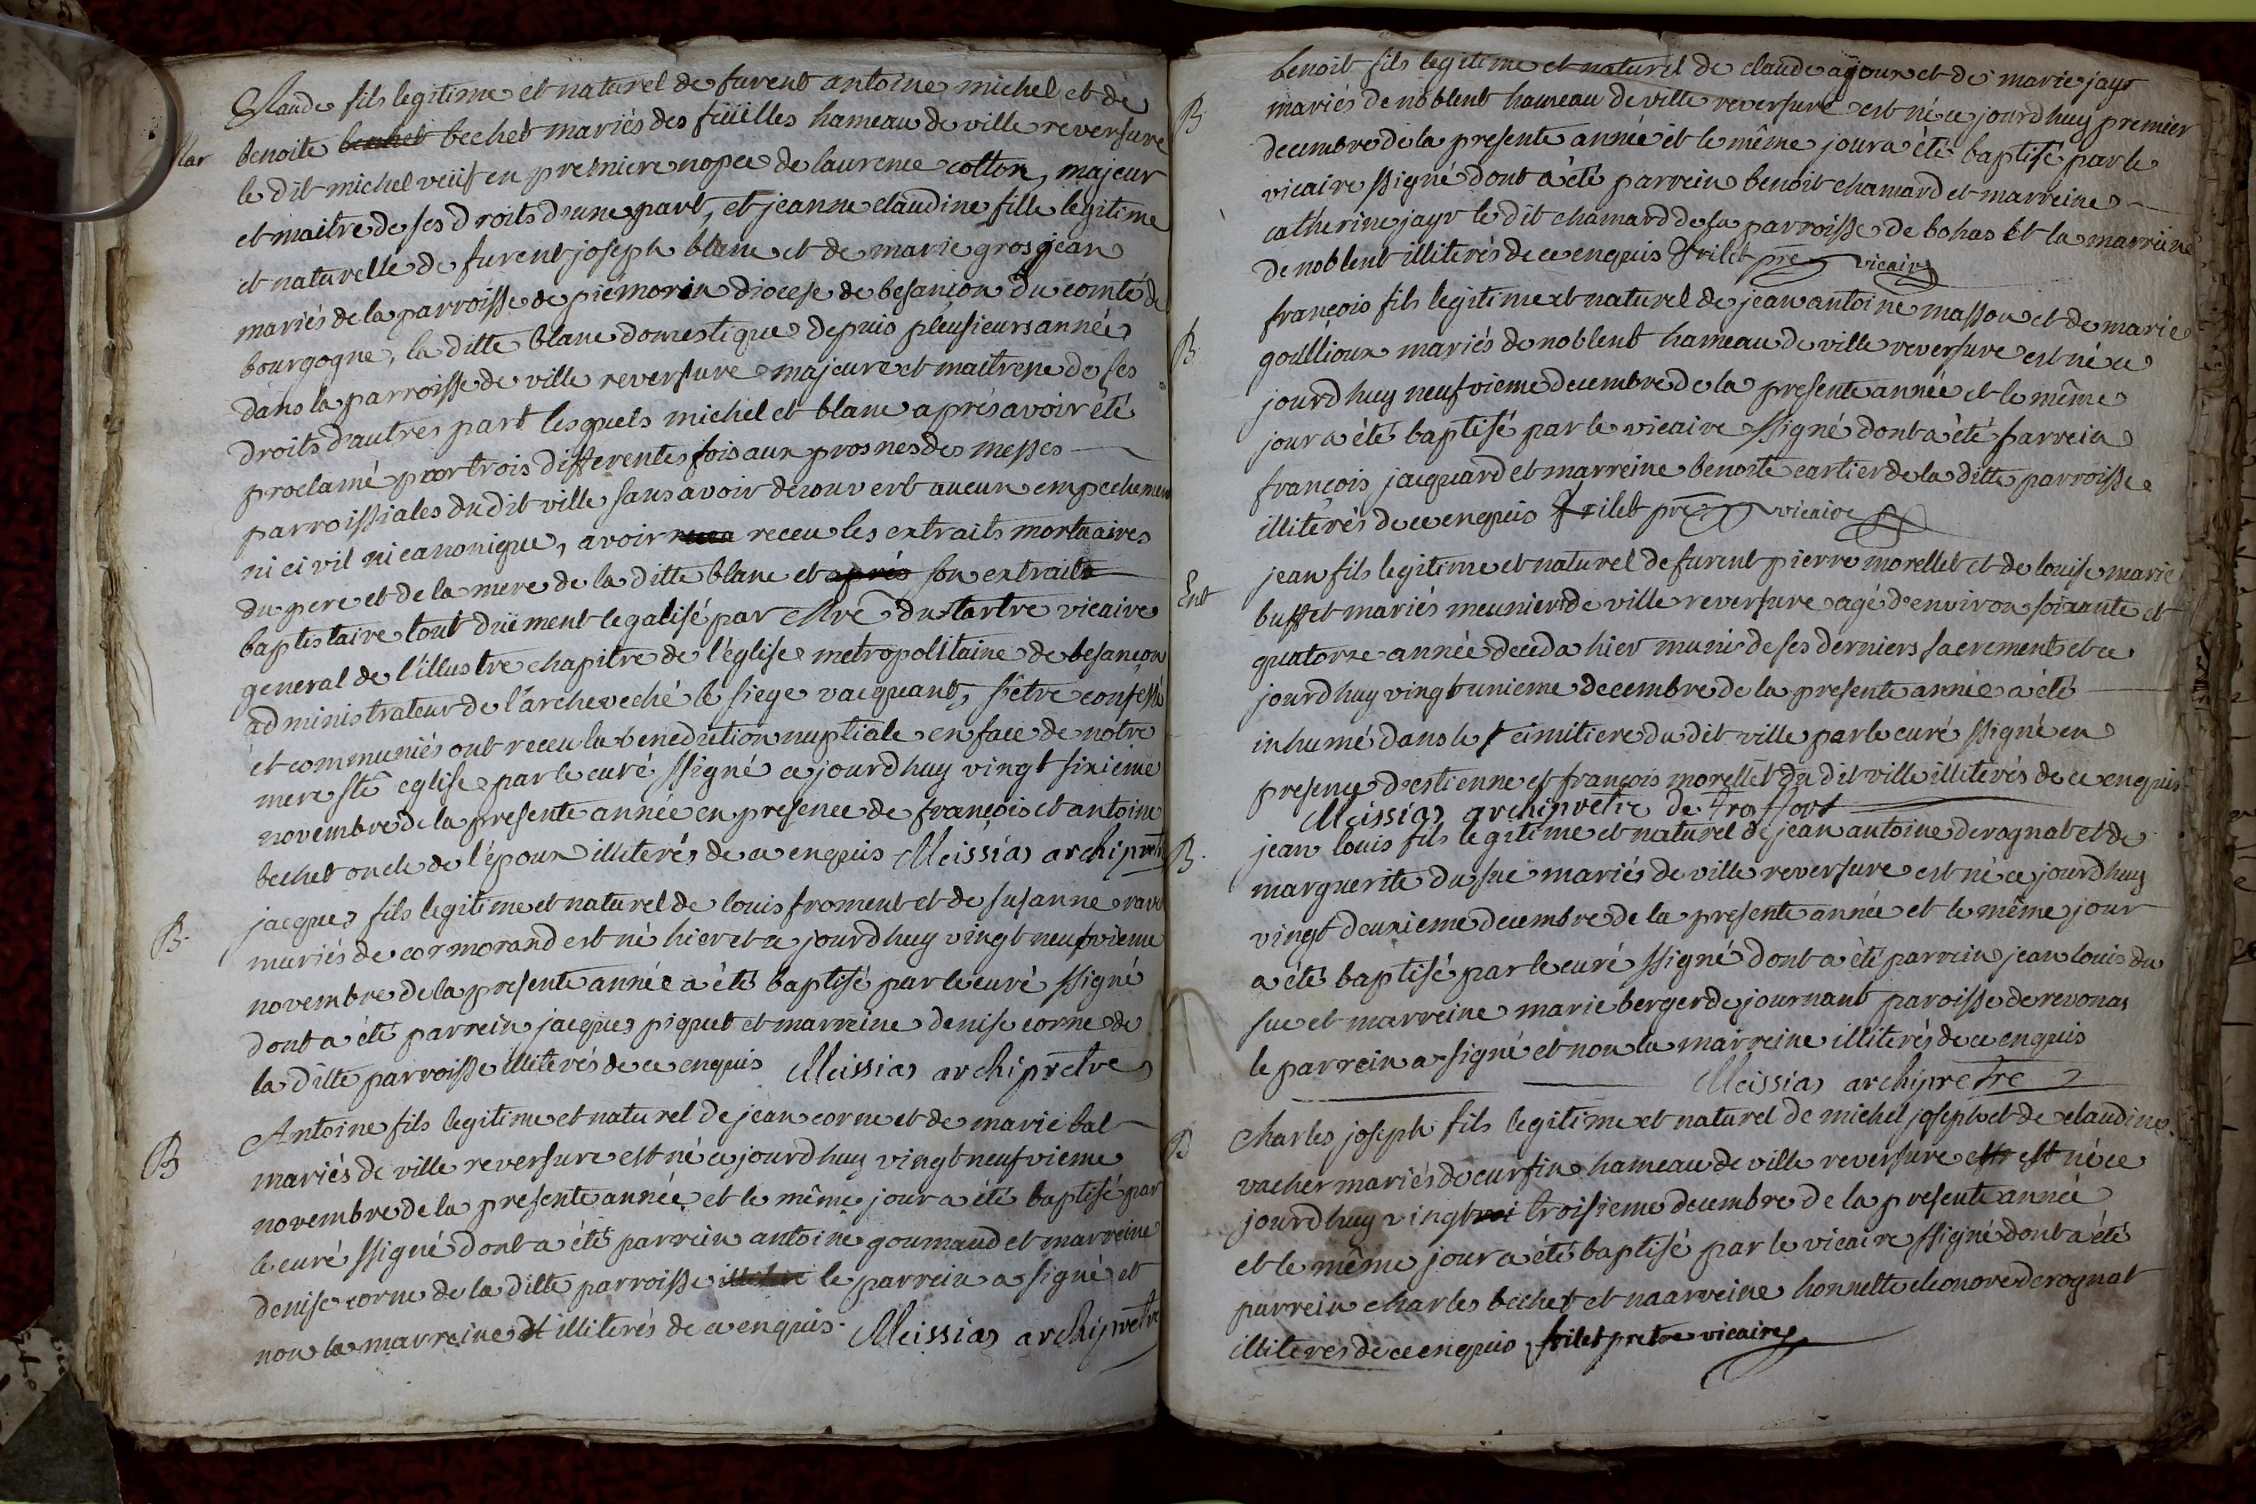 Mar
Claude fils legitime et naturel de furent antoine michel et de
benoite bechet bechet mariés des feüilles hameau de ville reversure
le dit michel veüf en premiere nopce de laurence cotton, majeur
et maitre de ses droits d'une part, et jeanne claudine fille legitime
et naturelle de furent joseph blanc et de marie grosjean
mariés de la parroisse de piémorin diocese de besançon du comté de
bourgogne, la ditte blanc domestique depuis pleusieurs année
dans la parroisse de ville reversure majeure et maitresse de ses
droits d'autres part lesquels michel et blanc aprés avoir été
proclamé par trois differentes fois aux prosnes des messes
parroissiales du dit ville sans avoir découvert aucun empechement
ni civil ni canonique, avoir receu les extraits mortuaires
du pere et de la mere de la ditte blanc et aprés son extrait
baptistaire tout düement legalisé par Mre du tartre vicaire
general de l'illustre chapitre de l'église metropolitaine de besançon
administrateur de l'archeveché le siege vacquant, s'être confessé
et communiés ont receu la benediction nuptiale en face de notre
mere ste eglise par le curé ssigné ce jourd huy vingt sixieme
novembre de la presente année en presence de françois et antoine
bechet oncle de l'époux illiterés de ce enquis Meissias archipretre
B.
jacques fils legitime et naturel de louis froment et de susanne ravet
mariés de cormorand est né hier et ce jourd huy vingt neufvieme
novembre de la presente année a été baptisé par le curé ssigné
dont a été parrein jacques piquet et marreine denise corne de
la ditte parroisse illiterés de ce enquis Meissias archipretre
B
Antoine fils legitime et naturel de jean corne et de marie bal
mariés de ville reversure est né ce jourd huy vingt neufvieme
novembre de la presente année et le même jour a été baptisé par
le curé ssigné dont a été parrein antoine gourmand et marreine
denise corne de la ditte parroisse le parrein a signé et
non la marreine illiterés de ce enquis. Meissias archipretre
B
benoit fils legitime et naturel de claude ajjoux et de marie jayr
mariés de noblent hameau de ville reversure est né ce jourd huy premier
decembre de la presente année et le même jour a été baptisé par le
vicaire ssigné dont a été parrein benoit chamard et marreine
catherine jayr le dit chamard de la parroisse de bohas et la marreine
de noblent illiterés de ce enquis frilet pre vicaire
B
françois fils legitime et naturel de jean antoine masson et de marie
goüillioux mariés de noblent hameau de ville reversure est né ce
jourd huy neufvieme decembre de la presente année et le même
jour a été baptisé par le vicaire ssigné dont a été parrein
françois jacquard et marreine benoite cartier de la ditte parroisse
illiterés de ce enquis frilet pre vicaire
Ent
jean fils legitime et naturel de furent pierre morellet et de louise marie
buffet mariés meunier de ville reversure agé d'environ soixante et
quatorze année deceda hier muni de ses derniers sacrements et ce
jourd huy vingt unieme decembre de la presente année a été
inhumé dans le cimitiere du dit ville par le curé ssigné en
presence d'estienne et françois morellet du dit ville illiterés de ce enquis
Meissias archipretre de Treffort
B.
jean louis fils legitime et naturel de jean antoine derognat et de
marguerite du suc mariés de ville reversure est né ce jourd huy
vingt deuxieme decembre de la presente année et le même jour
a été baptisé par le curé ssigné dont a été parrein jean louis du
suc et marreine marie berger de journant paroisse de revonas
le parrein a signé et non la marreine illiterés de ce enquis
Meissias archipretre
B
Charles joseph fils legitime et naturel de michel joseph et de claudine
vacher mariés de cursin hameau de ville reversure est est né ce
jourd huy vingt troi troisieme decembre de la presente année
et le même jour a été baptisé par le vicaire ssigné dont a été
parrein charles bechet et maarreine honnette eleonore derognat
illiterés de ce enquis frilet pretre vicaire